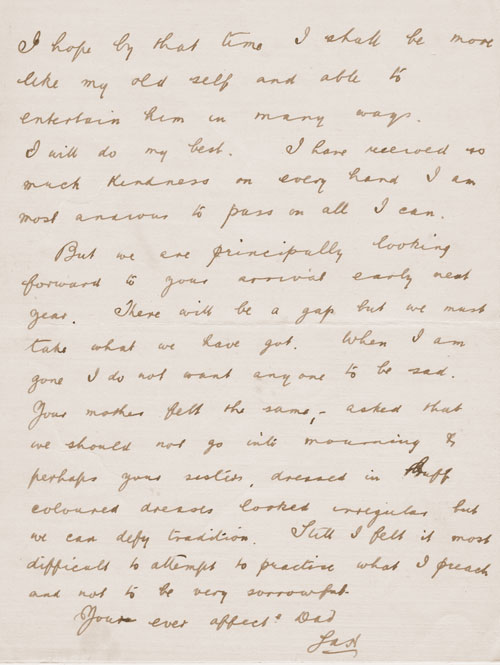 I hope by that time I shall be more
like my old self and able to
entertain him in many ways.
I will do my best. I have received so
much kindness on every hand I am
most anxious to pass on all I can.
But we are principally looking
forward to your arrival early next
year. There will be a gap but we must
take what we have got. When I am
gone I do not want anyone to be sad.
Your mother felt the same, - asked that
we should not go into mourning &
perhaps your sisters, dressed in Buff
coloured dresses looked irregular but
we can defy tradition. Still I felt it most
difficult to attempt to practise what I preach
and not to be very sorrowful.
Your ever affect. Dad